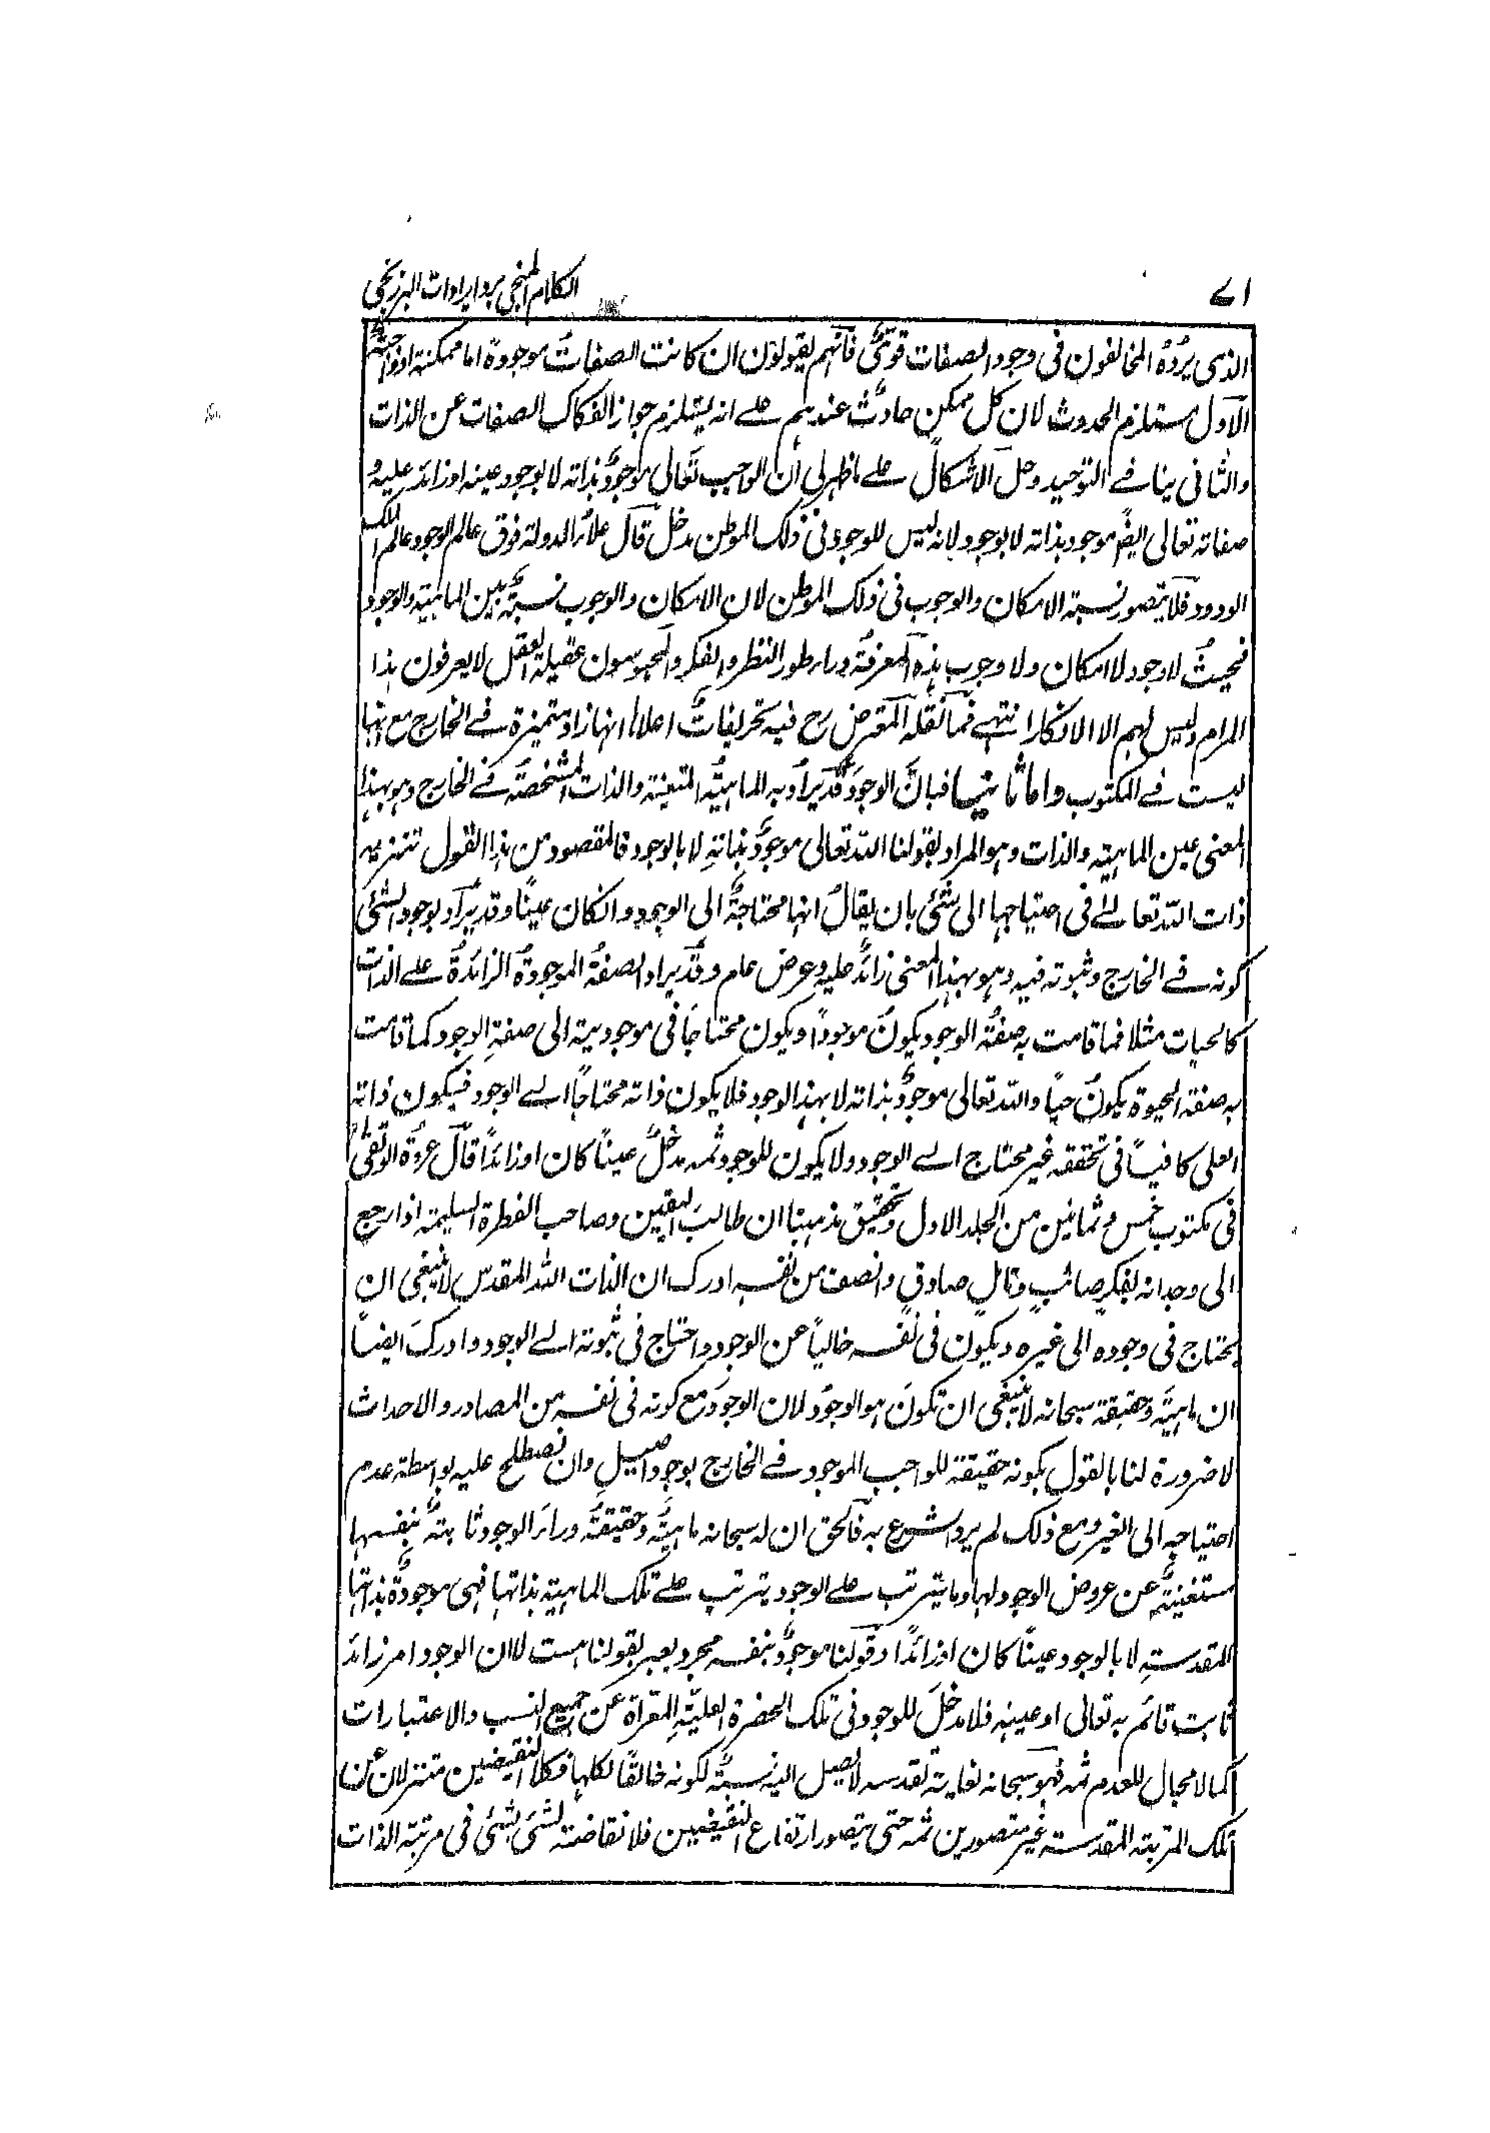 ٧١
الكلام المنجي برد ايرادات البرزنجي
الذي يردُه المخالفون في وجود الصفات قويٌّ فانهم يقولون ان كانت الصفاتُ موجودة اما ممكنة او واجبة
الاول مستلزم الحدوث لان كل ممكن حادثٌ عندهم علے انه يستلزم جواز انفكاك الصفات عن الذات
والثاني ينافے التوحيد وحل الاشكال علے ما ظهر لي ان الواجب تعالى موجودٌ بذاته لا بوجود عينه او زائد عليه و
صفاته تعالى ايضًا موجود بذاته لا بوجود لانه ليس للوجود في ذلك الموطن مدخل قال علاء الدولة فوق عالم الوجود عالم الملك
الودود فلا يتصور نسبة الامكان والوجوب في ذلك الموطن لان الامكان والوجوب نسبةٌ بين الماهية والوجود
فحيثُ لا وجود لا امكان ولا وجوب هذه المعرفةُ وراء طور النظر والفكر والمحبوسون عقيلة العقل لا يعرفون هذا
المرام وليس لهم الا الانكار انتهے فما نقله المعترض رح فيه تحريفاتٌ اعلاها انها زاد متميزة فے الخارج مع انها
ليست فے المكتوب واما ثانيها فبانَّ الوجودَ قد يراد به الماهيةُ المتعينة والذات المشخصةُ فے الخارج وهو بهذا
المعنى عين الماهية والذات وهو المراد بقولنا الله تعالى موجودٌ بذاتهِ لا بالوجود فالمقصود من هذا القول تنزيه
ذات الله تعالےٰ في احتياجها الى شئ بان يقالُ انها محتاجةٌ الى الوجود وانكان عينًا وقد يراد بوجود الشئ
كونه فے الخارج وثبوته فيه وهو بهذا المعنى زائدٌ عليه وعرض عام وقد يراد الصفةُ الموجودةُ الزائدةُ علے الذات
كالحيات مثلا فما قامت به صفةُ الوجود يكونُ موجودًا ويكون محتاجًا في موجوديته الى صفةِ الوجود كما قامت
به صفة الحيوة يكونُ حيًا والله تعالى موجودٌ بذاته لا بهذا الوجود فلا يكون ذاته محتاجًا الے الوجود فيكون ذاته
العلى كافيًا في تحققه غير محتاج الے الوجود ولا يكون للوجود ثمه مدخلٌ عينًا كان او زائدًا قال عروة الوثقىٰ
في مكتوب خمس وثمانين من الجلد الاول وتحقيق مذهبنا ان طالبَ اليقين وصاحب الفطرة السليمة اذا رجع
الى وجدانه بفكرٍ صائبٍ وتاملٍ صادقٍ وانصف من نفسه ادرك ان الذات الله المقدس لا ينبغي ان
يحتاج في وجوده الى غيره ويكون في نفسه خاليًا عن الوجود واحتاج في ثبوته الے الوجود وادركَ ايضًا
ان ماهيتَه وحقيقة سبحانه لا ينبغي ان تكونَ هو الوجودُ لان الوجودَ مع كونه في نفسه من المصادر والاحداث
لا ضرورة لنا بالقول بكونه حقيقة للواجب الموجود فے الخارج بوجودٍ اصيلٍ وان نصطلح عليه بواسطة عدم
احتياجه الى الغير ومع ذلك لم يرد الشرع به فالحق ان له سبحانه ماهيةً وحقيقةً وراءَ الوجود ثابتةٌ بنفسها
مستغنيةٌ عن عروض الوجود لها وما يترتب علے الوجود يترتب علے تلك الماهية بذاتها فهي موجودةٌ بذاتها
المقدسةِ لا بالوجود عينًا كان او زائدًا وقولنا موجودٌ بنفسه مجرد يعبر بقولنا هست لا ان الوجود امر زائد
ثابت قائم به تعالى او عينه فلا مدخلَ للوجود في تلك الحضرة العليّةِ المقراة عن جميع النسب والاعتبارات
كما لا مجال للعدم ثمه فهو سبحانه لغاية تقدسه لا يصل اليه نسبةٌ لكونه خالقًا لكلها فكلا النقيضين متنزلان عن
تلك المرتبة المقدسة غير متصورين ثمه حتى يتصور ارتفاع النقيضين فلا نقاضة لشئ بشئ في مرتبة الذات